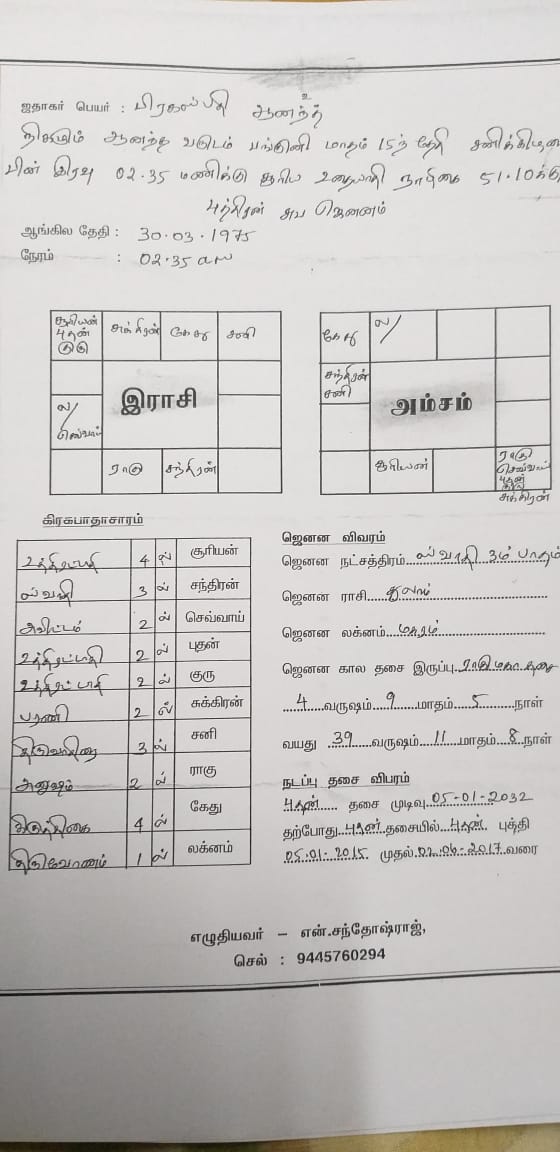 உ
ஜாதகர் பெயர் : பிரகஸ்பதி ஆனந்த்
நிகழும் ஆனந்த வருடம் பங்குனி மாதம் 15ந் தேதி சனிக்கிழமை
பின் இரவு 02.35 மணிக்கு சூரிய உதயாதி நாழிகை 51.10க்கு
புத்திரன் சுப ஜெனனம்
ஆங்கில தேதி : 30.03.1975
நேரம் : 02.35 am
சூரியன் புதன் குரு
சுக்கிரன்
கேது
சனி
இராசி
ல/ செவ்வாய்
ராகு
சந்திரன்
கேது
ல/
சந்திரன் சனி
அம்சம்
சூரியன்
ராகு செவ்வாய் புதன் குரு
சுக்கிரன்
கிரகபாதாசாரம்
உத்திரட்டாதி 4 ல் சூரியன்
ஸ்வாதி 3 ல் சந்திரன்
அவிட்டம் 2 ல் செவ்வாய்
உத்திரட்டாதி 2 ல் புதன்
உத்திரட்டாதி 2 ல் குரு
பரணி 2 ல் சுக்கிரன்
திருவாதிரை 3 ல் சனி
அனுஷம் 2 ல் ராகு
கிருத்திகை 4 ல் கேது
திருவோணம் 1 ல் லக்னம்
ஜெனன விவரம்
ஜெனன நட்சத்திரம்....ஸ்வாதி 3ம் பாதம்
ஜெனன ராசி....துலாம்
ஜெனன லக்னம்....மகரம்
ஜெனன கால தசை இருப்பு..ராகு மகா தசை
4 வருஷம் 9 மாதம் 5 நாள்
வயது 39 வருஷம் 11 மாதம் 8 நாள்
நடப்பு தசை விபரம்
புதன் தசை முடிவு 05-01-2032
தற்போது புதன் தசையில் புதன் புத்தி
05.01.2015 முதல் 02-06-2017 வரை
எழுதியவர் – என்.சந்தோஷ்ராஜ்,
செல் : 9445760294